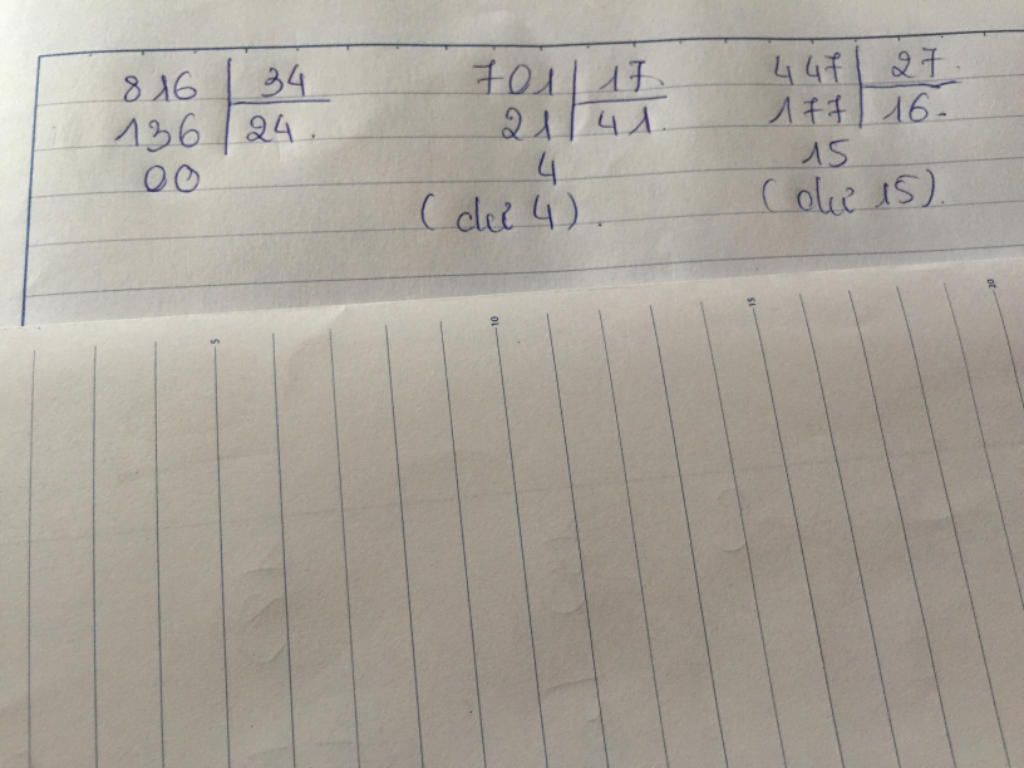 816 34
136 24.
00
701 17.
21 41.
4
(dư 4).
447 27.
177 16.
15
(dư 15).
5 10 15 20